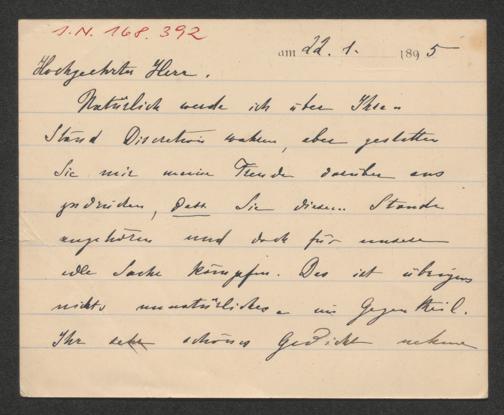 I.N. 168.392
am 22. 1. 1895
Hochgeehrter Herr.
Natürlich werde ich über Ihren
Stand Discretion wahren, aber gestatten
Sie mir meine Freude darüber aus
zudrücken, dass Sie diesem Stande
angehören und doch für unsere
edle Sache kämpfen. Das ist übrigens
nichts unnatürliches – im Gegentheil.
Ihr sehr schönes Gedicht nehme